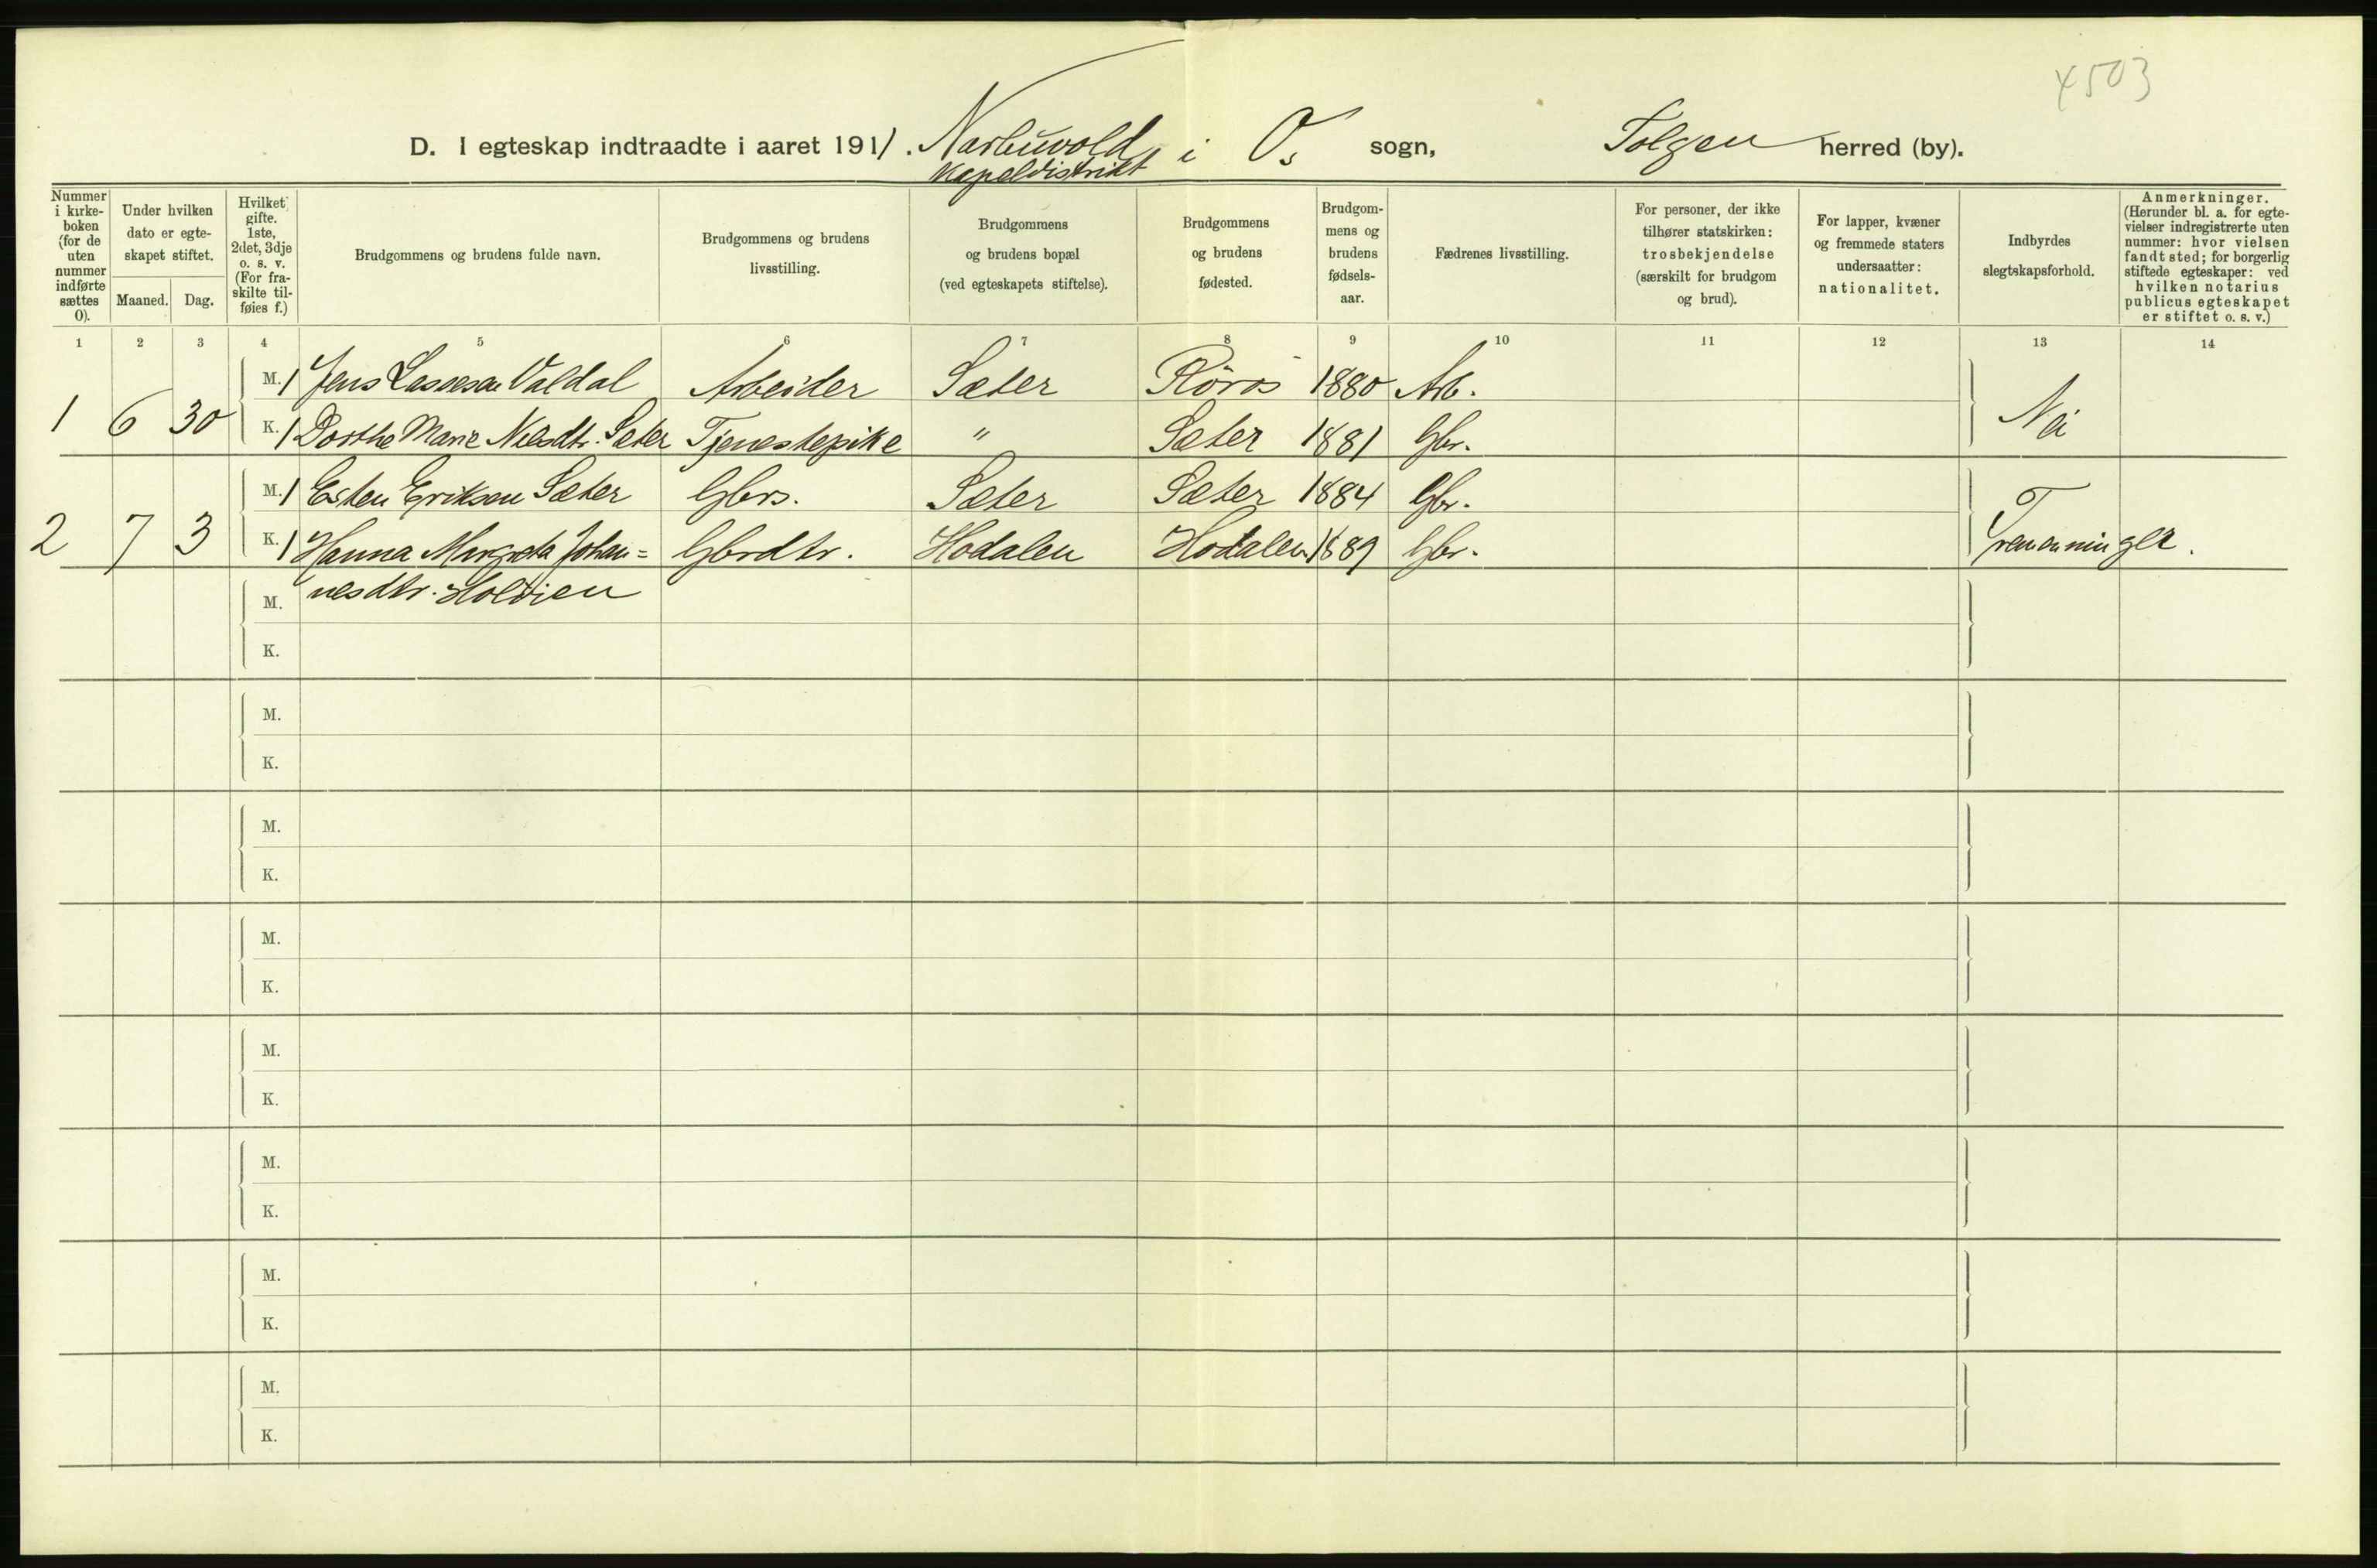 4503
D. I egteskap indtraadte i aaret 1911. Narbuvold i Os sogn, Tolgen herred (by).
Kapeldistrikt
Nummer i kirkeboken (for de uten nummer indførte sættes 0).
Under hvilken dato er egteskapet stiftet.
Maaned. Dag.
Hvilket gifte. 1ste, 2det, 3dje o. s. v. (For fraskilte tilføies f.)
Brudgommens og brudens fulde navn.
Brudgommens og brudens livsstilling.
Brudgommens og brudens bopæl (ved egteskapets stiftelse).
Brudgommens og brudens fødested.
Brudgommens og brudens fødselsaar.
Fædrenes livsstilling.
For personer, der ikke tilhører statskirken: trosbekjendelse (særskilt for brudgom og brud).
For lapper, kvæner og fremmede staters undersaatter: nationalitet.
Indbyrdes slegtskapsforhold.
Anmerkninger. (Herunder bl. a. for egtevielser indregistrerte uten nummer: hvor vielsen fandt sted; for borgerlig stiftede egteskaper: ved hvilken notarius publicus egteskapet er stiftet o. s. v.)
1 2 3 4 5 6 7 8 9 10 11 12 13 14
M. 1 Jens Lassesen Valdal Arbeider Sæter Röros 1880 Arb.
1 6 30 K. 1 Dorthe Marie Nilsdtr. Sæter Tjenestepike " Sæter 1881 Gbr. Nei
M. 1 Esten Eriksen Sæter Gbrs. Sæter Sæter 1884 Gbr.
2 7 3 K. 1 Hanna Margreta Johan= Gbrdtr. Hodalen Hodalen 1889 Gbr. Tremenninger.
M. nesdtr. Holöien
K.
M.
K.
M.
K.
M.
K.
M.
K.
M.
K.
M.
K.
M.
K.